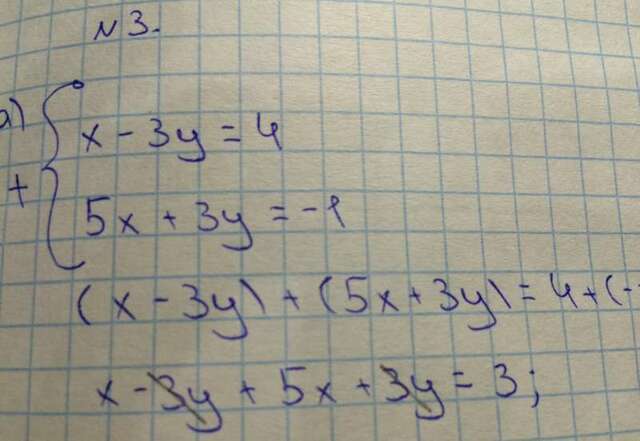 N3.
а)
x - 3y = 4
+
5x + 3y = -1
(x - 3y) + (5x + 3y) = 4 + (-
x - 3y + 5x + 3y = 3;